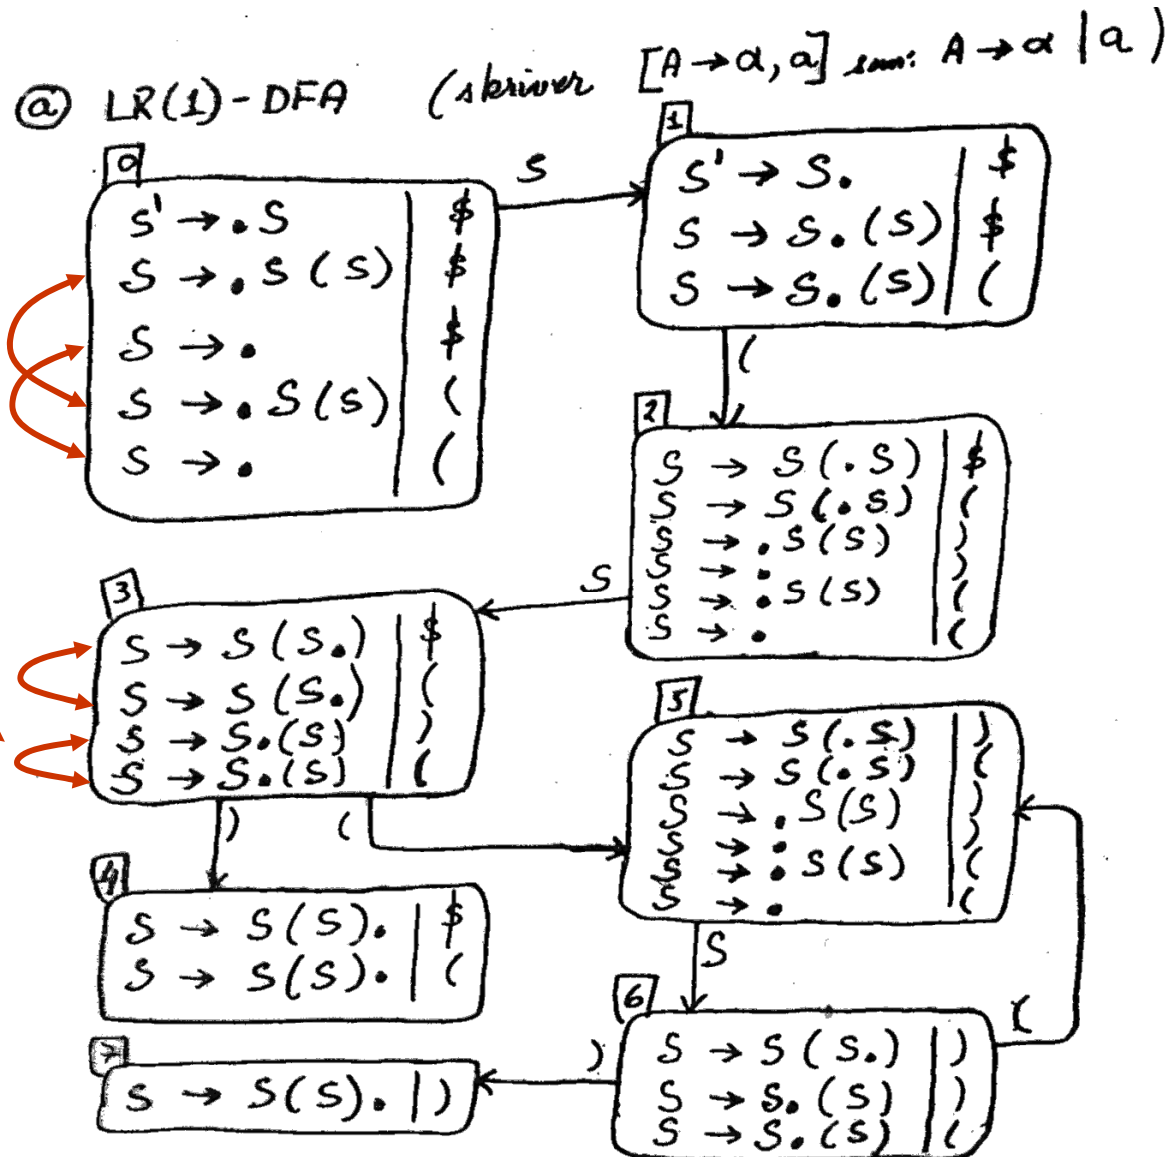 ⓐ LR(1)-DFA (skriver [A → α, a] som: A → α | a )
0
S' → .S | $
S → .S(S) | $
S → . | $
S → .S(S) | (
S → . | (
S
1
S' → S. | $
S → S.(S) | $
S → S.(S) | (
(
2
S → S(.S) | $
S → S(.S) | (
S → .S(S) | )
S → . | )
S → .S(S) | (
S → . | (
S
3
S → S(S.) | $
S → S(S.) | (
S → S.(S) | )
S → S.(S) | (
) (
5
S → S(.S) | )
S → S(.S) | (
S → .S(S) | )
S → . | )
S → .S(S) | (
S → . | (
4
S → S(S). | $
S → S(S). | (
S
6
S → S(S.) | )
S → S.(S) | )
S → S.(S) | (
(
)
7
S → S(S). | )